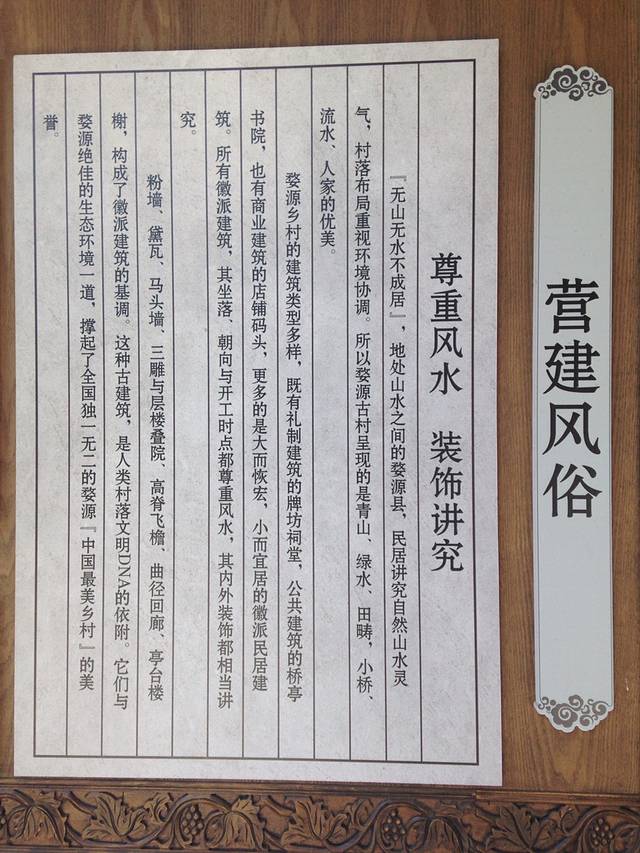 营建风俗
尊重风水 装饰讲究
『无山无水不成居』，地处山水之间的婺源县，民居讲究自然山水灵
气，村落布局重视环境协调。所以婺源古村呈现的是青山、绿水、田畴，小桥、
流水、人家的优美。
婺源乡村的建筑类型多样，既有礼制建筑的牌坊祠堂，公共建筑的桥亭
书院，也有商业建筑的店铺码头，更多的是大而恢宏，小而宜居的徽派民居建
筑。所有徽派建筑，其坐落、朝向与开工时点都尊重风水，其内外装饰都相当讲
究。
粉墙、黛瓦、马头墙、三雕与层楼叠院、高脊飞檐、曲径回廊、亭台楼
榭，构成了徽派建筑的基调。这种古建筑，是人类村落文明DNA的依附。它们与
婺源绝佳的生态环境一道，撑起了全国独一无二的婺源『中国最美乡村』的美
誉。